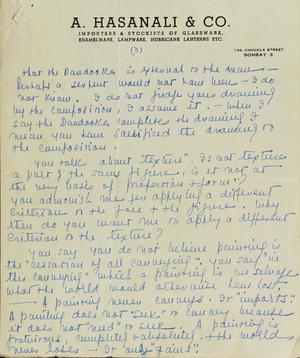 A. HASANALI & CO.
IMPORTERS & STOCKISTS OF GLASSWARE,
ENAMELWARE, LAMPWARE, HURRICANE LANTERNS ETC.
(3)
CHUCKLA STREET,
BOMBAY 3
that the Dandooka is external to the man —
Perhaps a serpent would not have been — I do
not know. I do not judge your drawing
by the composition, I assume it. — When I
say the Dandooka completes the drawing I
mean you have sacrificed the drawing to
the composition.
You talk about "texture". Is not texture
a part of the same figure, is it not at
the very basis of proportion & form?
You admonish me for applying a different
criterion to the face & the figure. Why
then do you want me to apply a different
criterion to the texture?
You say you do not believe painting is
the "cessation of all conveying". You say "in
this conveying" which a painting is we salvage
what the world would otherwise have lost.
— A painting never conveys. It "imparts".
A painting does not "seek" to convey because
it does not "need" to seek. A painting is
gratuitous, complete & absolute. & the world
never loses — It only "gains".